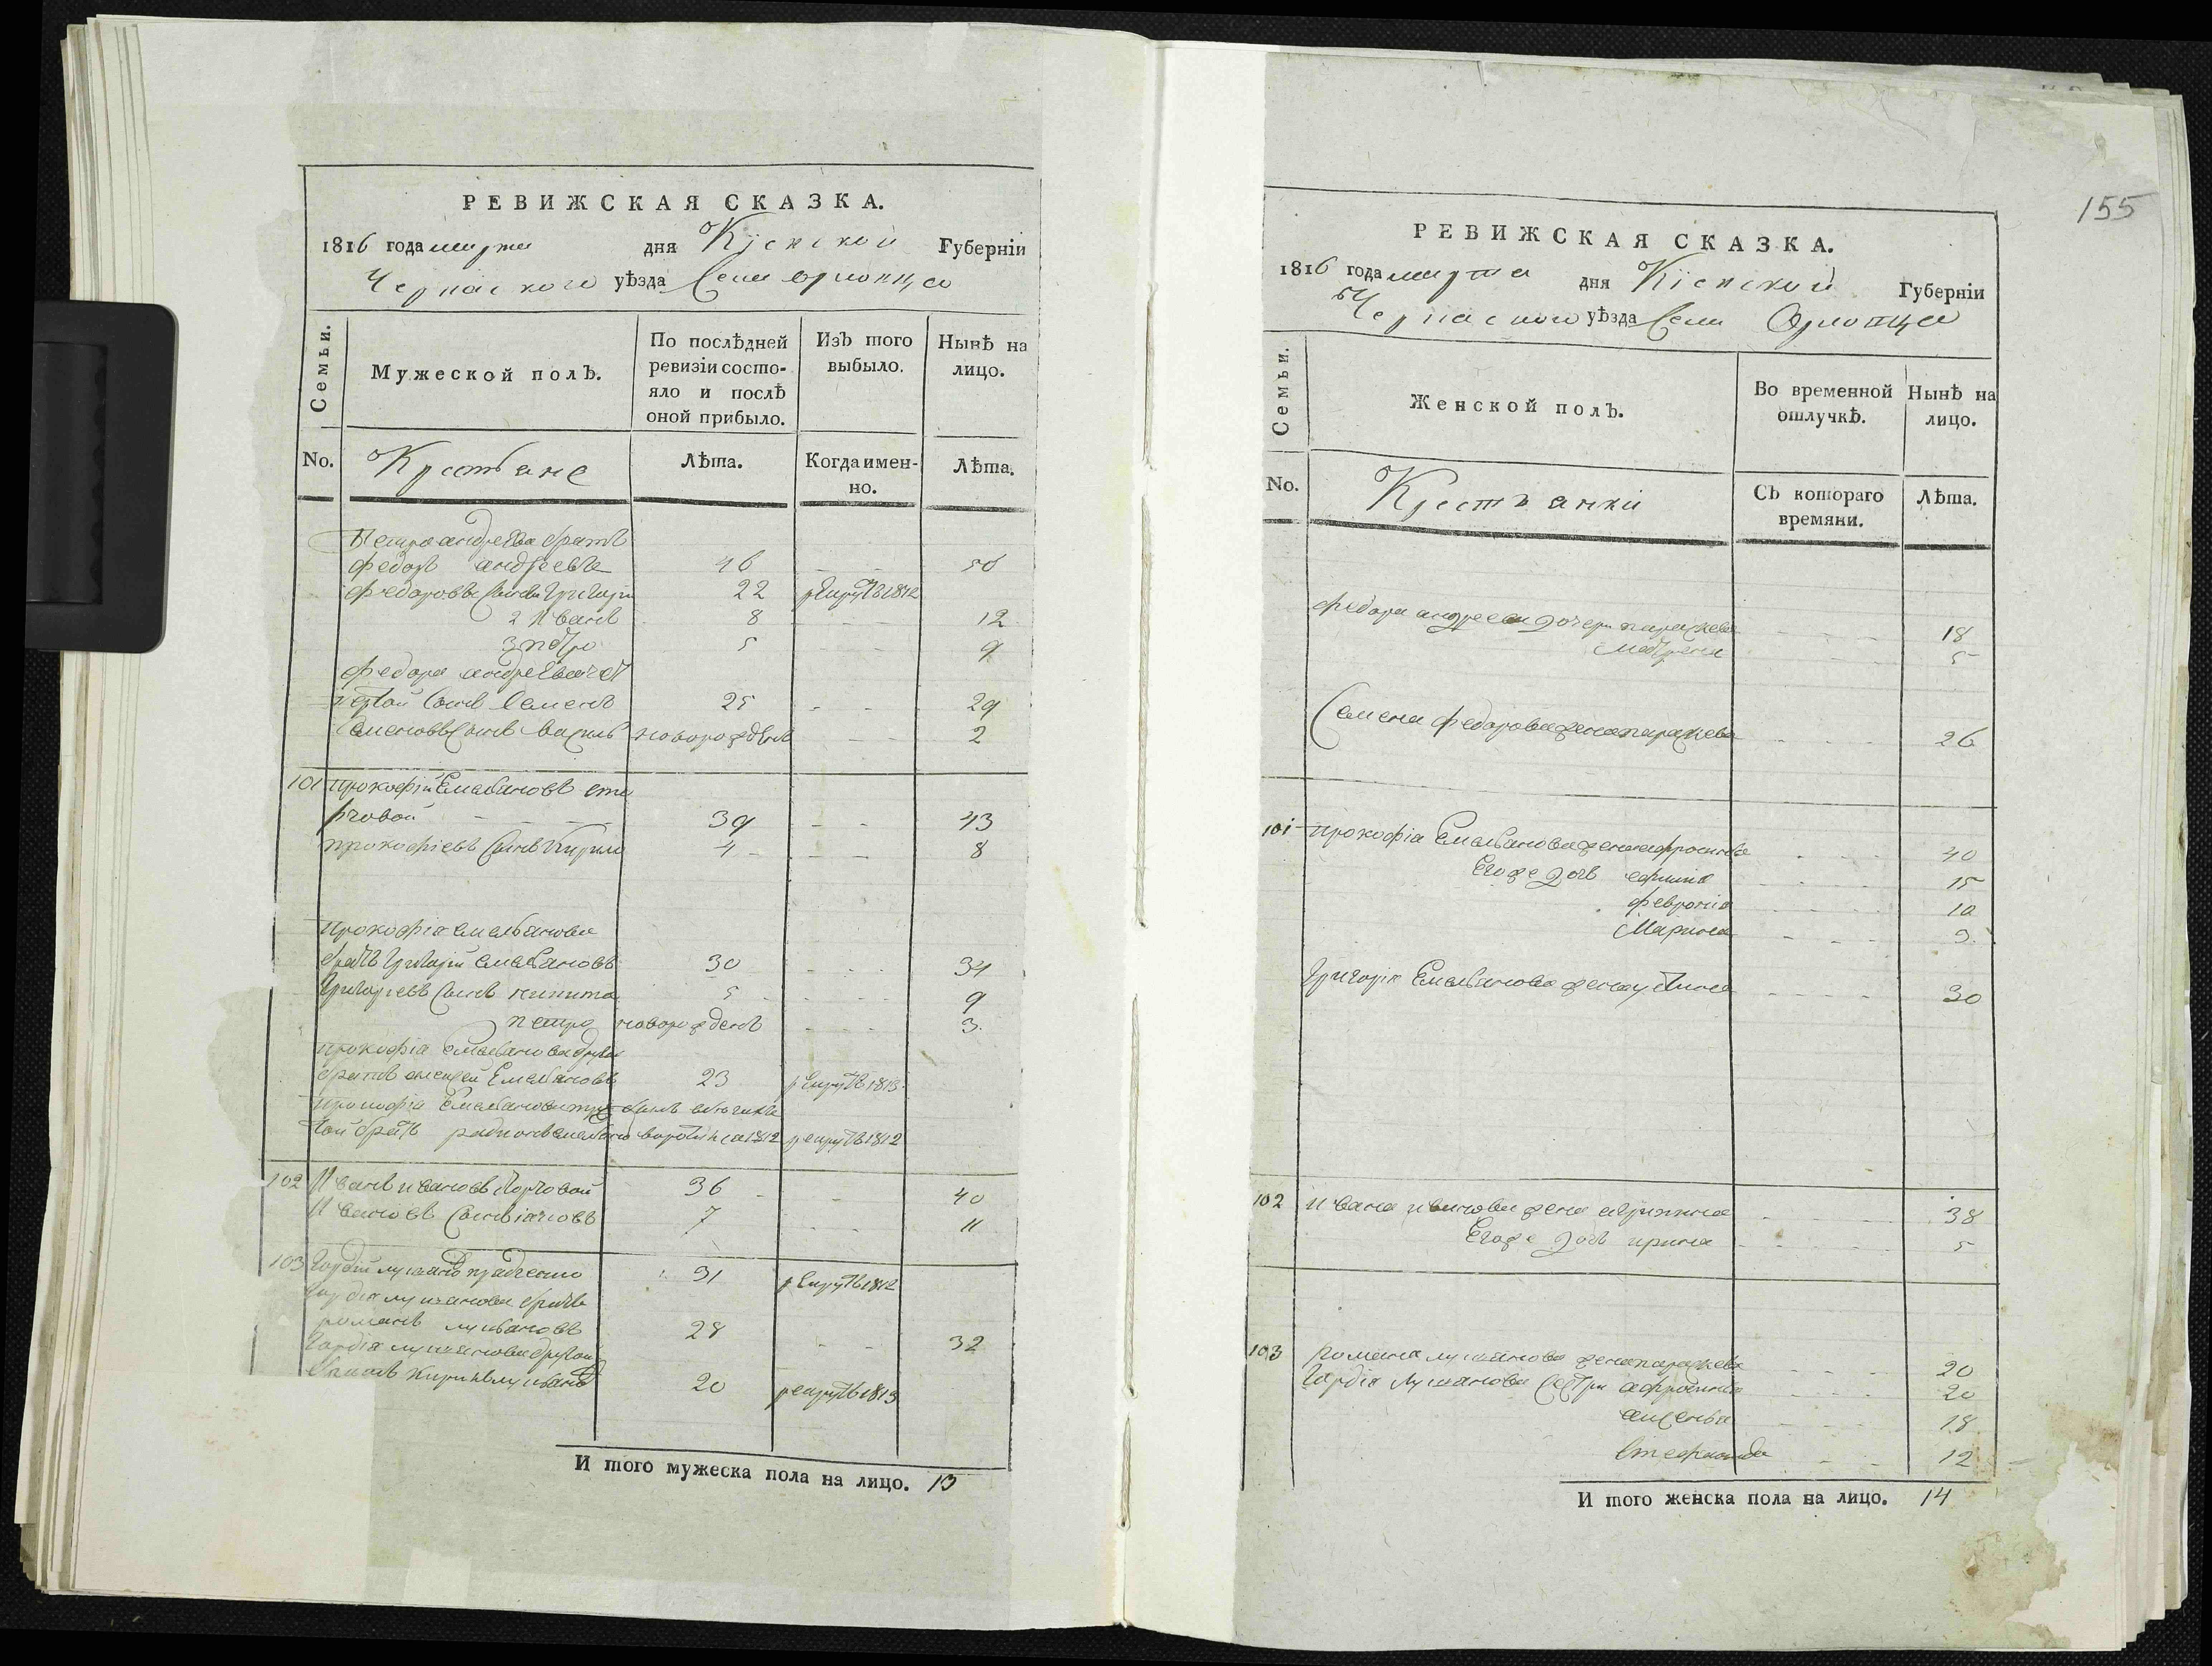 РЕВИЖСКАЯ СКАЗКА.
1816 года марта дня Кіевской Губерніи
Черкаского уѣзда Села Орловца
Семьи.
Мужеской полъ.
По послѣдней ревизіи состояло и послѣ оной прибыло.
Изъ того выбыло.
Нынѣ на лицо.
No. Крестьяне Лѣта. Когда именно. Лѣта.
Петра андреева братъ
федоръ андреевъ 46 50
федоровы сыны Григорій 22 рекрутъ 1812
2 Иванъ 8 12
3 петро 5 9
федора андреева
сынъ Семенъ 25 29
Семеновъ сынъ василь новорожденъ 2
101 прокофій Емельяновъ
39 43
прокофіевъ сынъ Кирило 4 8
прокофіа емельянова
братъ Григорій емельяновъ 30 34
Григоріевъ сынъ никита 5 9
петро новорожденъ 3
прокофіа Емельянова другой
братъ алексей Емельяновъ 23 рекрутъ 1813
прокофіа Емельянова
братъ родионъ 1812 рекрутъ 1812
102 Иванъ ивановъ 36 40
Ивановъ сынъ 7 11
103 Гордій лукьяновъ 31 рекрутъ 1812
Гордіа лукьянова братъ
романъ лукьяновъ 28 32
Гордіа лукьянова другой
братъ лукьяновъ 20 рекрутъ 1813
И того мужеска пола на лицо. 13
155
РЕВИЖСКАЯ СКАЗКА.
1816 года марта дня Кіевской Губерніи
Черкаского уѣзда Села Орловца
Семьи.
Женской полъ.
Во временной отлучкѣ.
Нынѣ на лицо.
No. Крестьянки Съ котораго времяни. Лѣта.
федора андреева дочери параскева 18
мотрена 5
Семена федорова жена параскева 26
101 прокофіа Емельянова жена 40
Егоже дочь 15
февронія 10
Марина 3
Григоріа Емельянова жена 30
102 ивана иванова жена 38
Егоже дочь ирина 5
103 романа лукьянова жена параскева 20
Гордіа лукьянова сестри афросинія 20
18
12
И того женска пола на лицо. 14